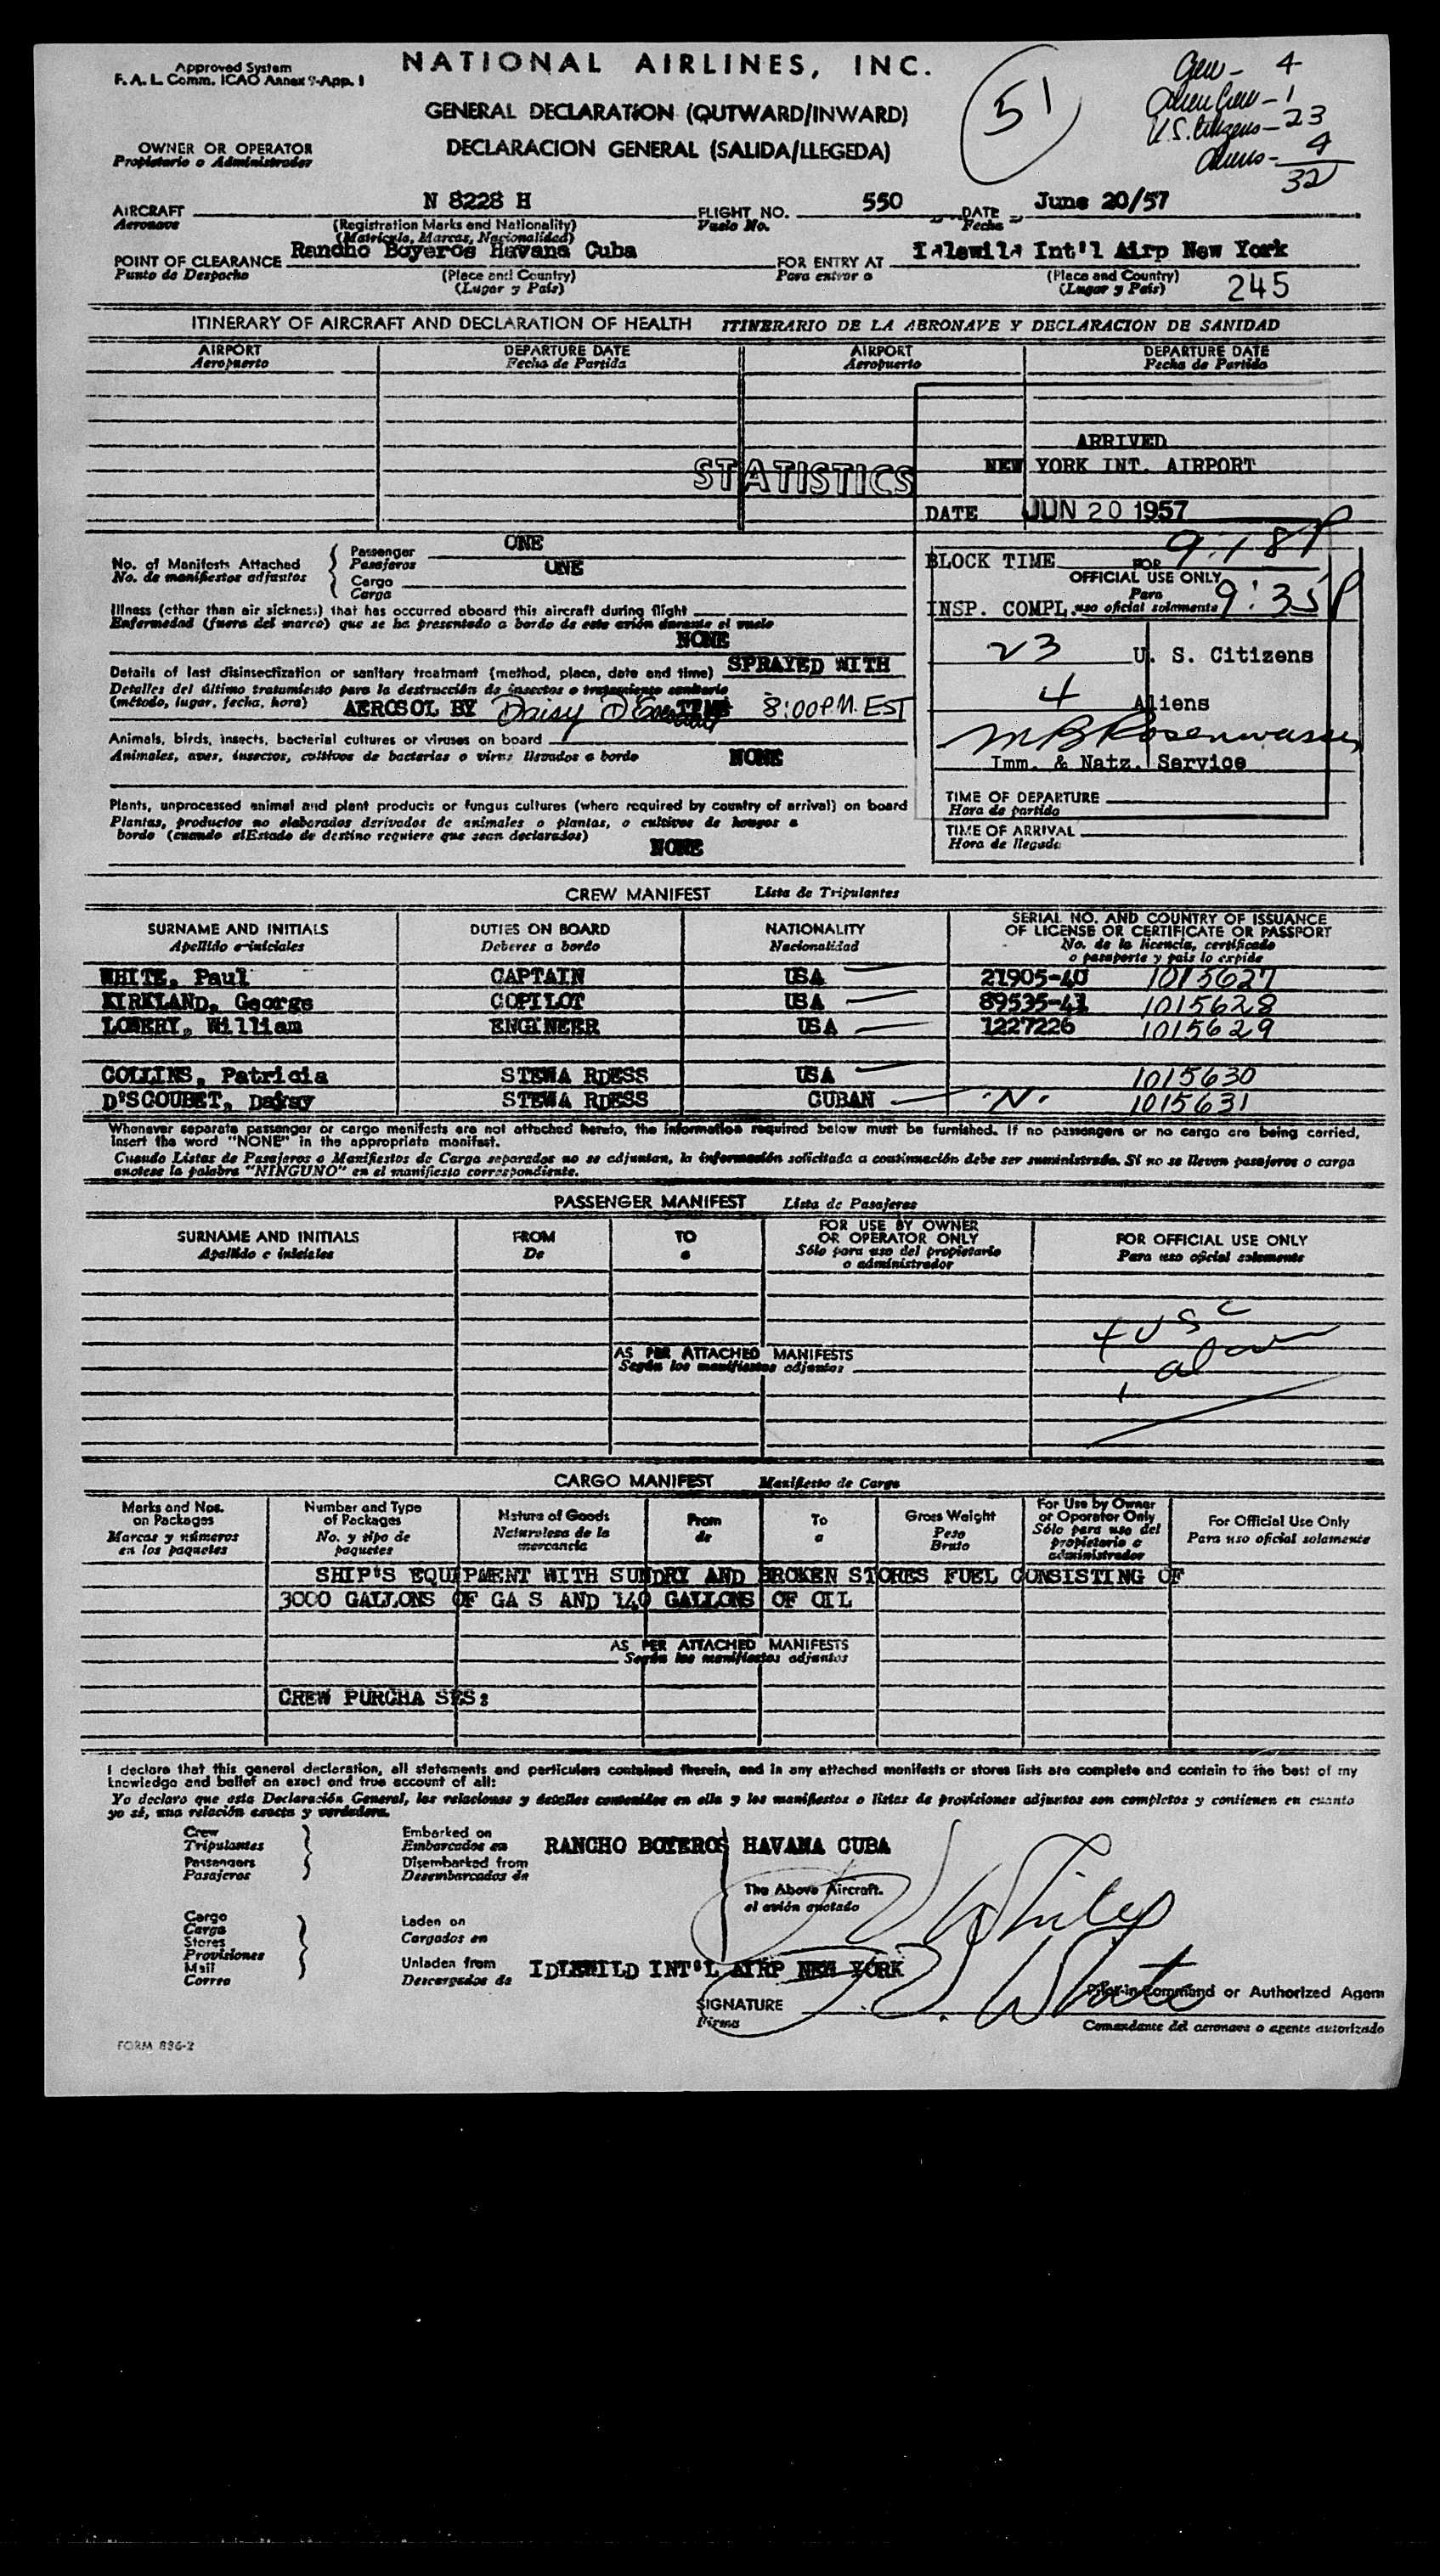 Approved System
F. A. L. Comm. ICAO Annex 9-App. 1
NATIONAL AIRLINES, INC.
GENERAL DECLARATION (OUTWARD/INWARD)
DECLARACION GENERAL (SALIDA/LLEGEDA)
51
Crew - 4
Alien Crew - 1
U.S. Citizens - 23
Aliens - 4
32
OWNER OR OPERATOR
Propietario o Administrador
AIRCRAFT N 8228 H FLIGHT NO. 550 DATE June 20/57
Aeronave (Registration Marks and Nationality) Vuelo No. Fecha
(Matricula, Marcas, Nacionalidad)
POINT OF CLEARANCE Rancho Boyeros Havana Cuba FOR ENTRY AT Idlewild Int'l Airp New York
Punto de Despacho (Place and Country) Para entrar a (Place and Country)
(Lugar y Pais) (Lugar y Pais) 245
ITINERARY OF AIRCRAFT AND DECLARATION OF HEALTH ITINERARIO DE LA AERONAVE Y DECLARACION DE SANIDAD
AIRPORT DEPARTURE DATE AIRPORT DEPARTURE DATE
Aeropuerto Fecha de Partida Aeropuerto Fecha de Partida
ARRIVED
STATISTICS NEW YORK INT. AIRPORT
DATE JUN 20 1957
No. of Manifests Attached Passenger ONE
No. de manifiestos adjuntos Pasajeros
Cargo ONE
Carga
BLOCK TIME 9:18P
FOR
OFFICIAL USE ONLY
Para
INSP. COMPL. uso oficial solamente 9:35P
Illness (other than air sickness) that has occurred aboard this aircraft during flight
Enfermedad (fuera del mareo) que se ha presentado a bordo de este avión durante el vuelo
NONE
23 U. S. Citizens
4 Aliens
MB Rosenwasser
Imm. & Natz. Service
Details of last disinsectization or sanitary treatment (method, place, date and time) SPRAYED WITH
Detalles del último tratamiento para la destrucción de insectos o tratamiento sanitario
(método, lugar, fecha, hora) AEROSOL BY Daisy TIME 8:00 P.M. EST
Animals, birds, insects, bacterial cultures or viruses on board
Animales, aves, insectos, cultivos de bacterias o virus llevados a bordo NONE
Plants, unprocessed animal and plant products or fungus cultures (where required by country of arrival) on board
Plantas, productos no elaborados derivados de animales o plantas, o cultivos de hongos a
bordo (cuando elEstado de destino requiere que sean declarados)
NONE
TIME OF DEPARTURE
Hora de partida
TIME OF ARRIVAL
Hora de llegada
CREW MANIFEST Lista de Tripulantes
SURNAME AND INITIALS DUTIES ON BOARD NATIONALITY SERIAL NO. AND COUNTRY OF ISSUANCE
OF LICENSE OR CERTIFICATE OR PASSPORT
Apellido e iniciales Deberes a bordo Nacionalidad No. de la licencia, certificado
o pasaporte y pais lo expide
WHITE, Paul CAPTAIN USA 21905-40 1015627
KIRKLAND, George COPILOT USA 89535-41 1015628
LOWERY, William ENGINEER USA 1227226 1015629
COLLINS, Patricia STEWARDESS USA 1015630
D'SCOUBET, Daisy STEWARDESS CUBAN N. 1015631
Whenever separate passenger or cargo manifests are not attached hereto, the information required below must be furnished. If no passengers or no cargo are being carried,
insert the word "NONE" in the appropriate manifest.
Cuando Listas de Pasajeros o Manifiestos de Carga separados no se adjuntan, la información solicitada a continuación debe ser suministrada. Si no se llevan pasajeros o carga
anotese la palabra "NINGUNO" en el manifiesto correspondiente.
PASSENGER MANIFEST Lista de Pasajeros
SURNAME AND INITIALS FROM TO FOR USE BY OWNER
OR OPERATOR ONLY FOR OFFICIAL USE ONLY
Apellido e iniciales De a Sólo para uso del propietario
o administrador Para uso oficial solamente
4 USC
AS PER ATTACHED MANIFESTS
Según los manifiestos adjuntos
1 alien
CARGO MANIFEST Manifiesto de Carga
Marks and Nos.
on Packages
Marcas y números
en los paquetes
Number and Type
of Packages
No. y tipo de
paquetes
Nature of Goods
Naturaleza de la
mercancia
From
de
To
a
Gross Weight
Peso
Bruto
For Use by Owner
or Operator Only
Sólo para uso del
propietario o
administrador
For Official Use Only
Para uso oficial solamente
SHIP'S EQUIPMENT WITH SUNDRY AND BROKEN STORES FUEL CONSISTING OF
3000 GALLONS OF GAS AND 140 GALLONS OF OIL
AS PER ATTACHED MANIFESTS
Según los manifiestos adjuntos
CREW PURCHASES:
I declare that this general declaration, all statements and particulars contained therein, and in any attached manifests or stores lists are complete and contain to the best of my
knowledge and belief an exact and true account of all:
Yo declaro que esta Declaración General, las relaciones y detalles contenidos en ella y los manifiestos o listas de provisiones adjuntos son completos y contienen en cuanto
yo sé, una relación exacta y verdadera.
Crew
Tripulantes
Passengers
Pasajeros
Embarked on
Embarcados en
Disembarked from
Desembarcados de
RANCHO BOYEROS HAVANA CUBA
The Above Aircraft.
el avión anotado
Cargo
Carga
Stores
Provisiones
Mail
Correo
Laden on
Cargados en
Unladen from
Descargados de
IDLEWILD INT'L AIRP NEW YORK
SIGNATURE
Firma
White
Pilot-in-Command or Authorized Agent
Comandante del aeronave o agente autorizado
FORM 836-2